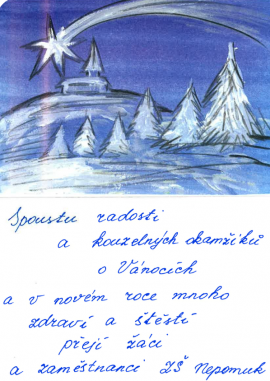 Spoustu radosti
a kouzelných okamžiků
o Vánocích
a v novém roce mnoho
zdraví a štěstí
přejí žáci
a zaměstnanci ZŠ Nepomuk